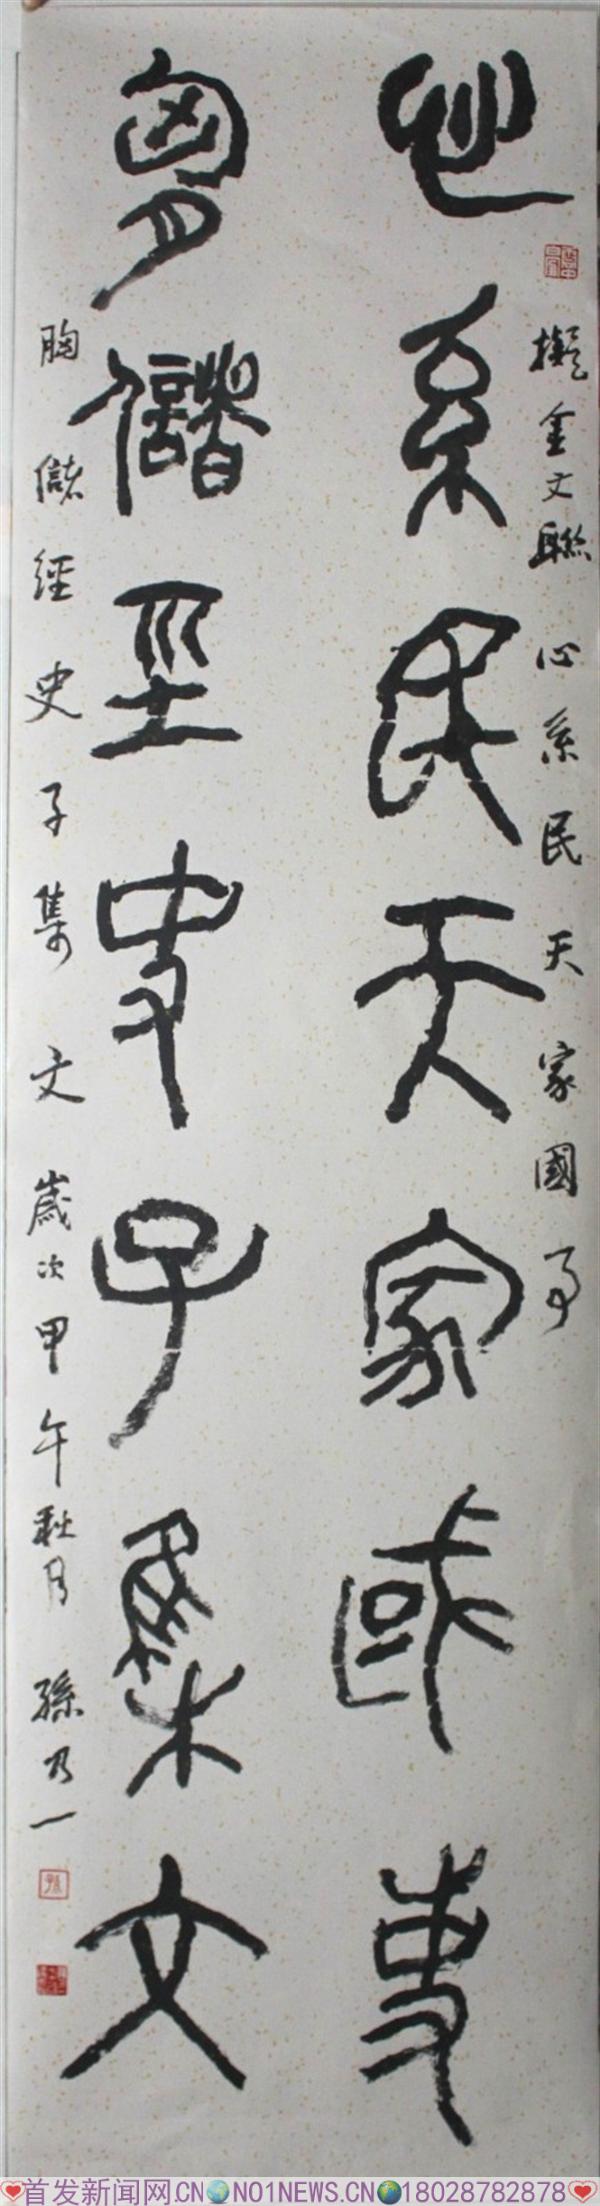 擬金文聯 心系民天家國事
心系民天家國事
胸儲經史子集文
胸儲經史子集文 歲次甲午秋月 孫乃一
首发新闻网.CN NO1NEWS.CN 18028782878